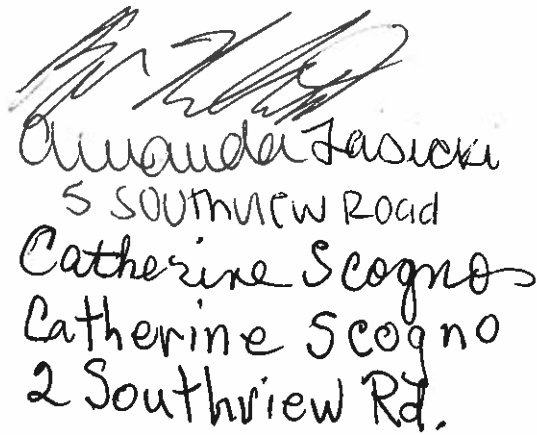 Amanda Lasicki
5 Southview Road
Catherine Scogno
Catherine Scogno
2 Southview Rd.